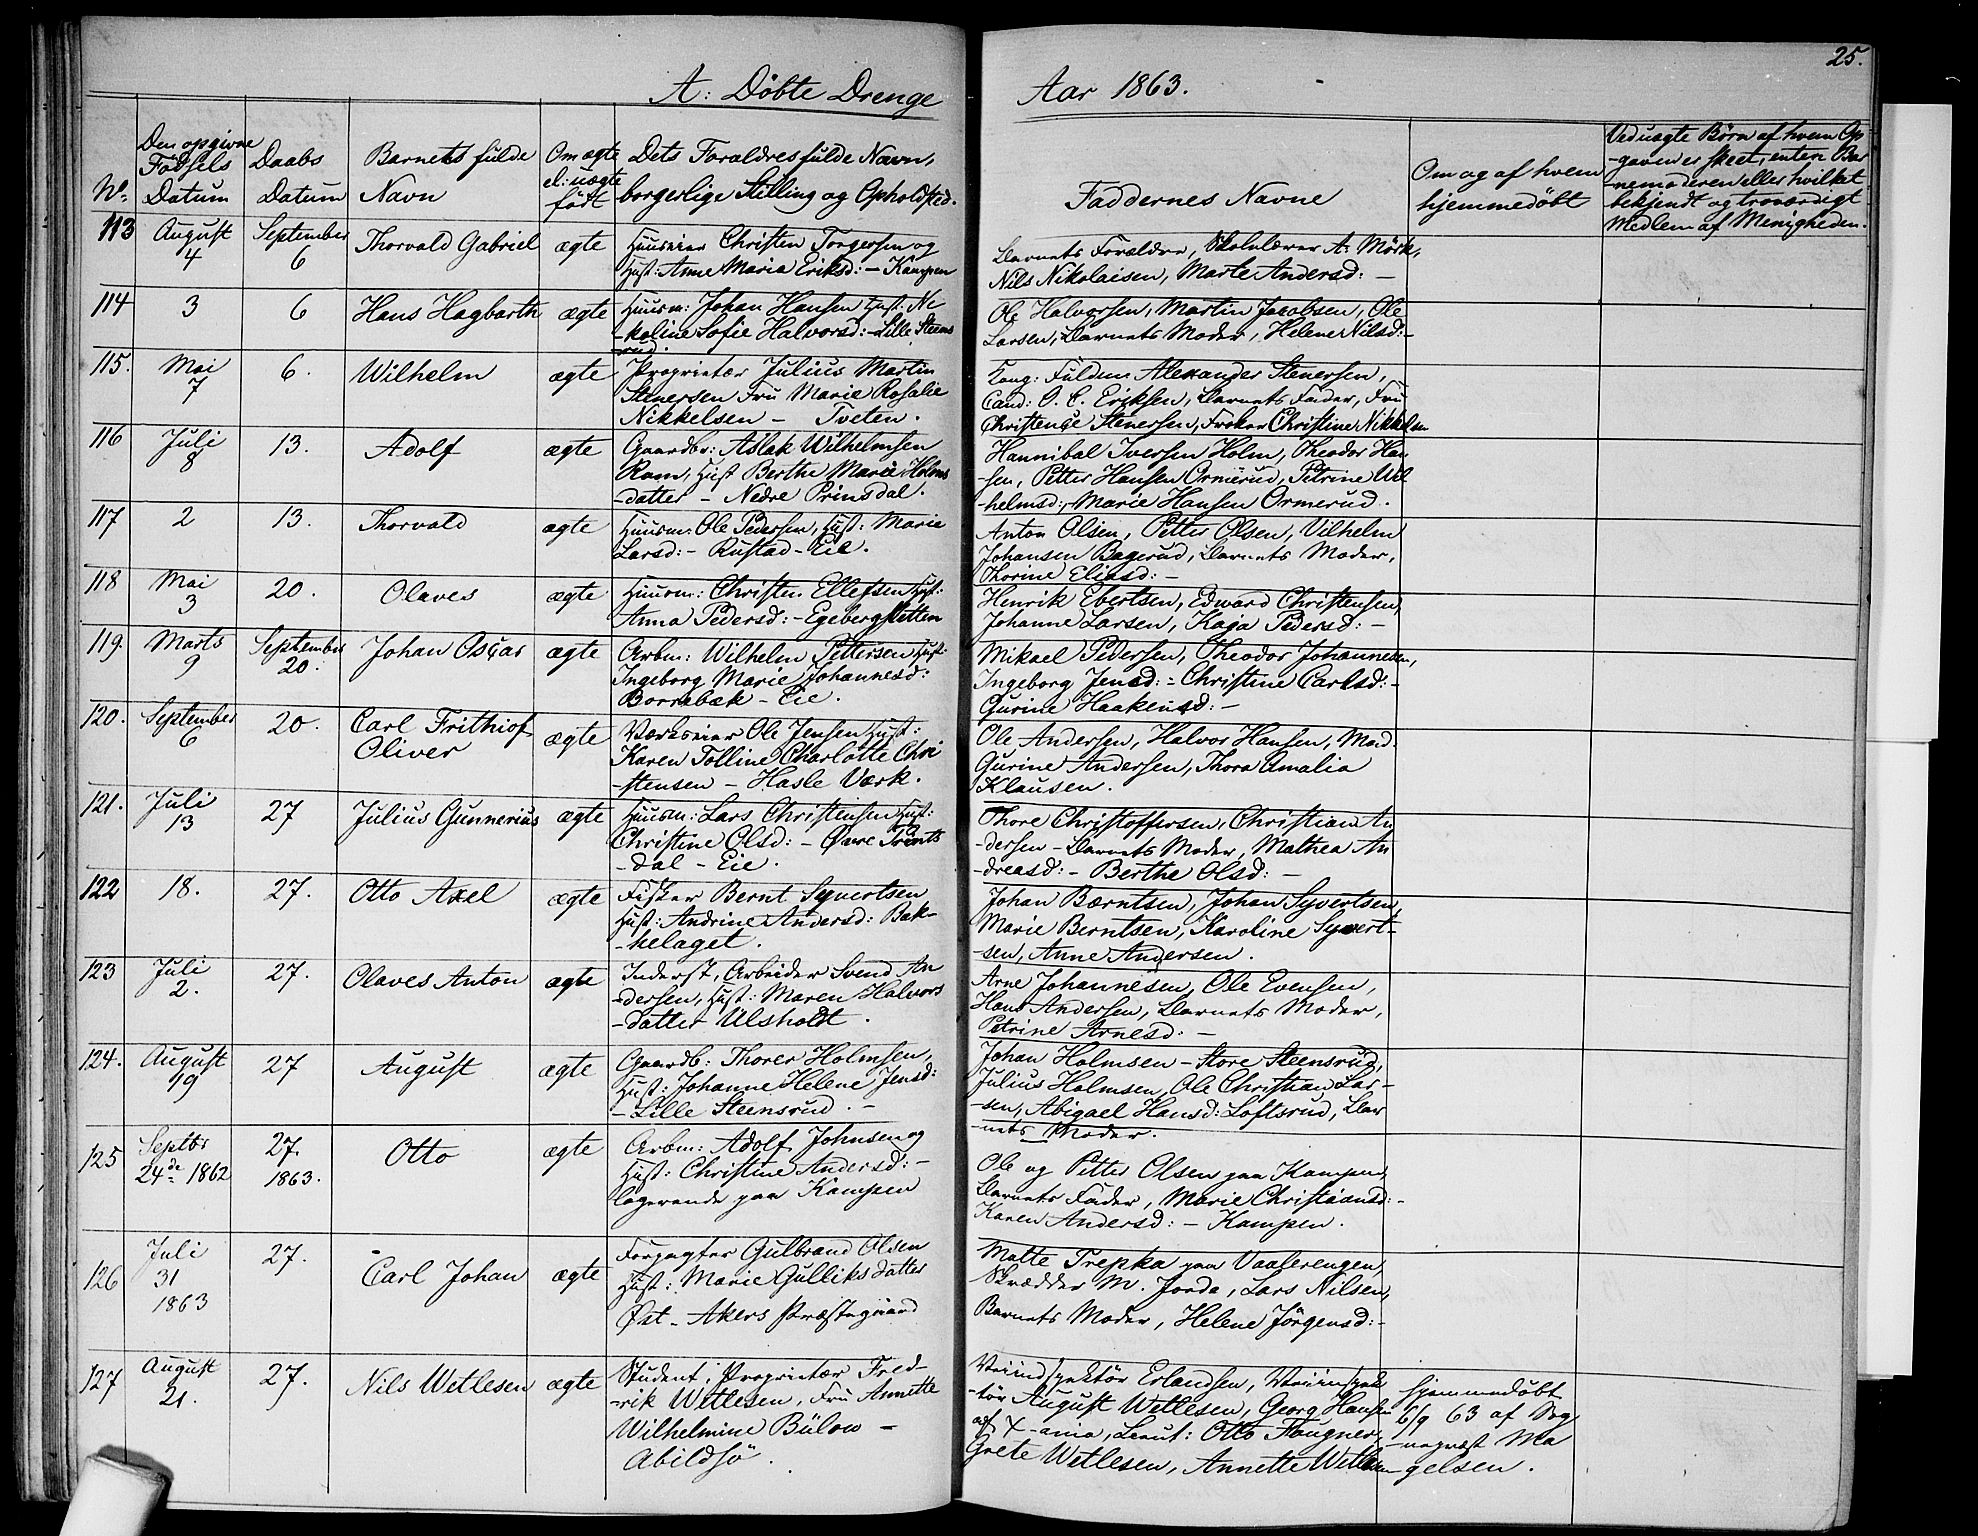 25.
A: Döbte Drenge
Aar 1863.
No.
Den opgivne
Födsels
Datum
Daabs
Datum
Barnets fulde
Navn
Om ægte
el: uægte
födt
Dets Forældres fulde Navn,
borgerlige Stilling og Opholdsted.
Faddernes Navne
Om og af hvem
hjemmedöbt
Ved uægte Börn af hvem Op-
-gaven er skeet, enten Bar
-nemoderen eller hvilket
bekjendt og troværdigt
Medlem af Menigheden.
113 August 4 September 6 Thorvald Gabriel ægte
Huuseier Christen Torgersen og
Hust: Anne Maria Eriksd: - Kampen
Barnets Forældre, Skolelærer A. Mörk,
Nils Nikolaisen, Marte Andersd: -
114 3 6 Hans Hagbarth ægte
Huusm: Johan Hansen Hust: Ni-
-koline Sofie Halvorsd: - Lille Steens
rud.
Ole Halvorsen, Martin Jacobsen, Ole
Larsen, Barnets Moder, Helene Nilsd: -
115. Mai 7 6. Wilhelm ægte
Proprietær Julius Martin
Stenersen Fru Marie Rosalie
Nikkelsen - Tveten.
Fuldm. Alexander Stenersen,
Cand: O. C. Eriksen, Barnets Fader, Fru
Christence Stenersen, Fröken Christine Nikkelsen
116 Juli 8 13. Adolf ægte
Gaardbr: Aslak Wilhelmsen
Ram, Hust Berthe Marie Holms
-datter - Nedre Prinsdal.
Hannibal Iversen Holm, Theodor Han
-sen, Petter Hansen Ormerud, Petrine Wil
-helmsd: Marie Hansen Ormerud.
117 2 13. Thorvald ægte
Huusm: Ole Pedersen, Hust: Marie
Larsd: - Rustad - Eie.
Anton Olsen, Petter Olsen, Vilhelm
Johansen Bagerud, Barnets Moder,
Thorine Eliasd: -
118 Mai 3 20. Olaves ægte
Huusm: Christen Ellefsen Hust:
Anna Pedersd: - Egebergsletten
Henrik Ebertsen, Edward Christensen,
Johanne Larsen, Kaja Pedersd: -
119. Marts 9 September 20. Johan Oscar ægte
Arbm: Wilhelm Pettersen Hust:
Ingeborg Marie Johannesd:
Borrebæk - Eie.
Mikael Pedersen, Theodor Johannesen,
Ingeborg Jensd: - Christine Carlsd: -
Gurine Haakensd: -
120. September 6 20. Carl Frithiof
Oliver ægte
Værkseier Ole Jensen Hust:
Karen Tolline Charlotte Chri
-stensen - Hasle Værk.
Ole Andersen, Halvor Hansen, Mad.
Gurine Andersen, Thora Amalia
Klausen.
121. Juli 13 27 Julius Gunnerius ægte
Huusm: Lars Christensen Hust:
Christine Olsd: - Övre Prints
-dal - Eie.
Thore Christoffersen, Christian An
-dersen - Barnets Moder, Mathea An
-dreasd: - Berthe Olsd: -
122 18. 27. Otto Axel ægte
Fisker Bernt Syvertsen
Hust: Andrine Andersd: Bak-
-helaget.
Johan Bærntsen, Johan Syvertsen,
Marie Berntsen, Karoline Syvert-
-sen, Anne Andersen.
123 Juli 2. 27. Olaves Anton ægte
Inderst, Arbeider Svend An
-dersen, Hust: Maren Halvors
-datter Ulsholdt.
Arne Johannesen, Ole Evensen,
Hans Andersen, Barnets Moder,
Petrine Arnesd: -
124. August 19 27 August ægte
Gaardb: Thorer Holmsen,
Hust: Johanne Helene Jensd:
- Lille Steensrud. -
Johan Holmsen - Store Steensrud,
Julius Holmsen, Ole Christian Lar-
-sen, Abigael Hansd: Loftsrud, Bar
-nets Moder.
125 Septbr 24de 1862 27. 1863. Otto ægte
Arbm: Adolf Johnsen og
Hust: Christine Andersd: -
logerende paa Kampen
Ole og Petter Olsen paa Kampen,
Barnets Fader, Marie Christiansd: -
Karen Andersd: - Kampen.
126 Juli 31 1863 27. Carl Johan ægte
Forpagter Gulbrand Olsen
Hust: Marie Gulliksdatter
Öst - Akers Præstegaard
Malte Trepka paa Vaalerengen,
Skrædder M. Jorda, Lars Nilsen,
Barnets Moder, Helene Jörgensd: -
127 August 21. 27. Nils Wetlesen ægte
Student, Proprietær Fred-
-rik Wetlesen, Fru Annette
Wilhelmine Bülow -
Abildsö.
Veiindspektör Erlandsen, Veiinspek
-tör August Wetlesen, Georg Hansen
af X-ania, Leut: Otto Faugner,
Grete Wetlesen, Annette Wetlesen
hjemmedöbt
6/9 63 af Sog
-nepræst Ma
gelsen.